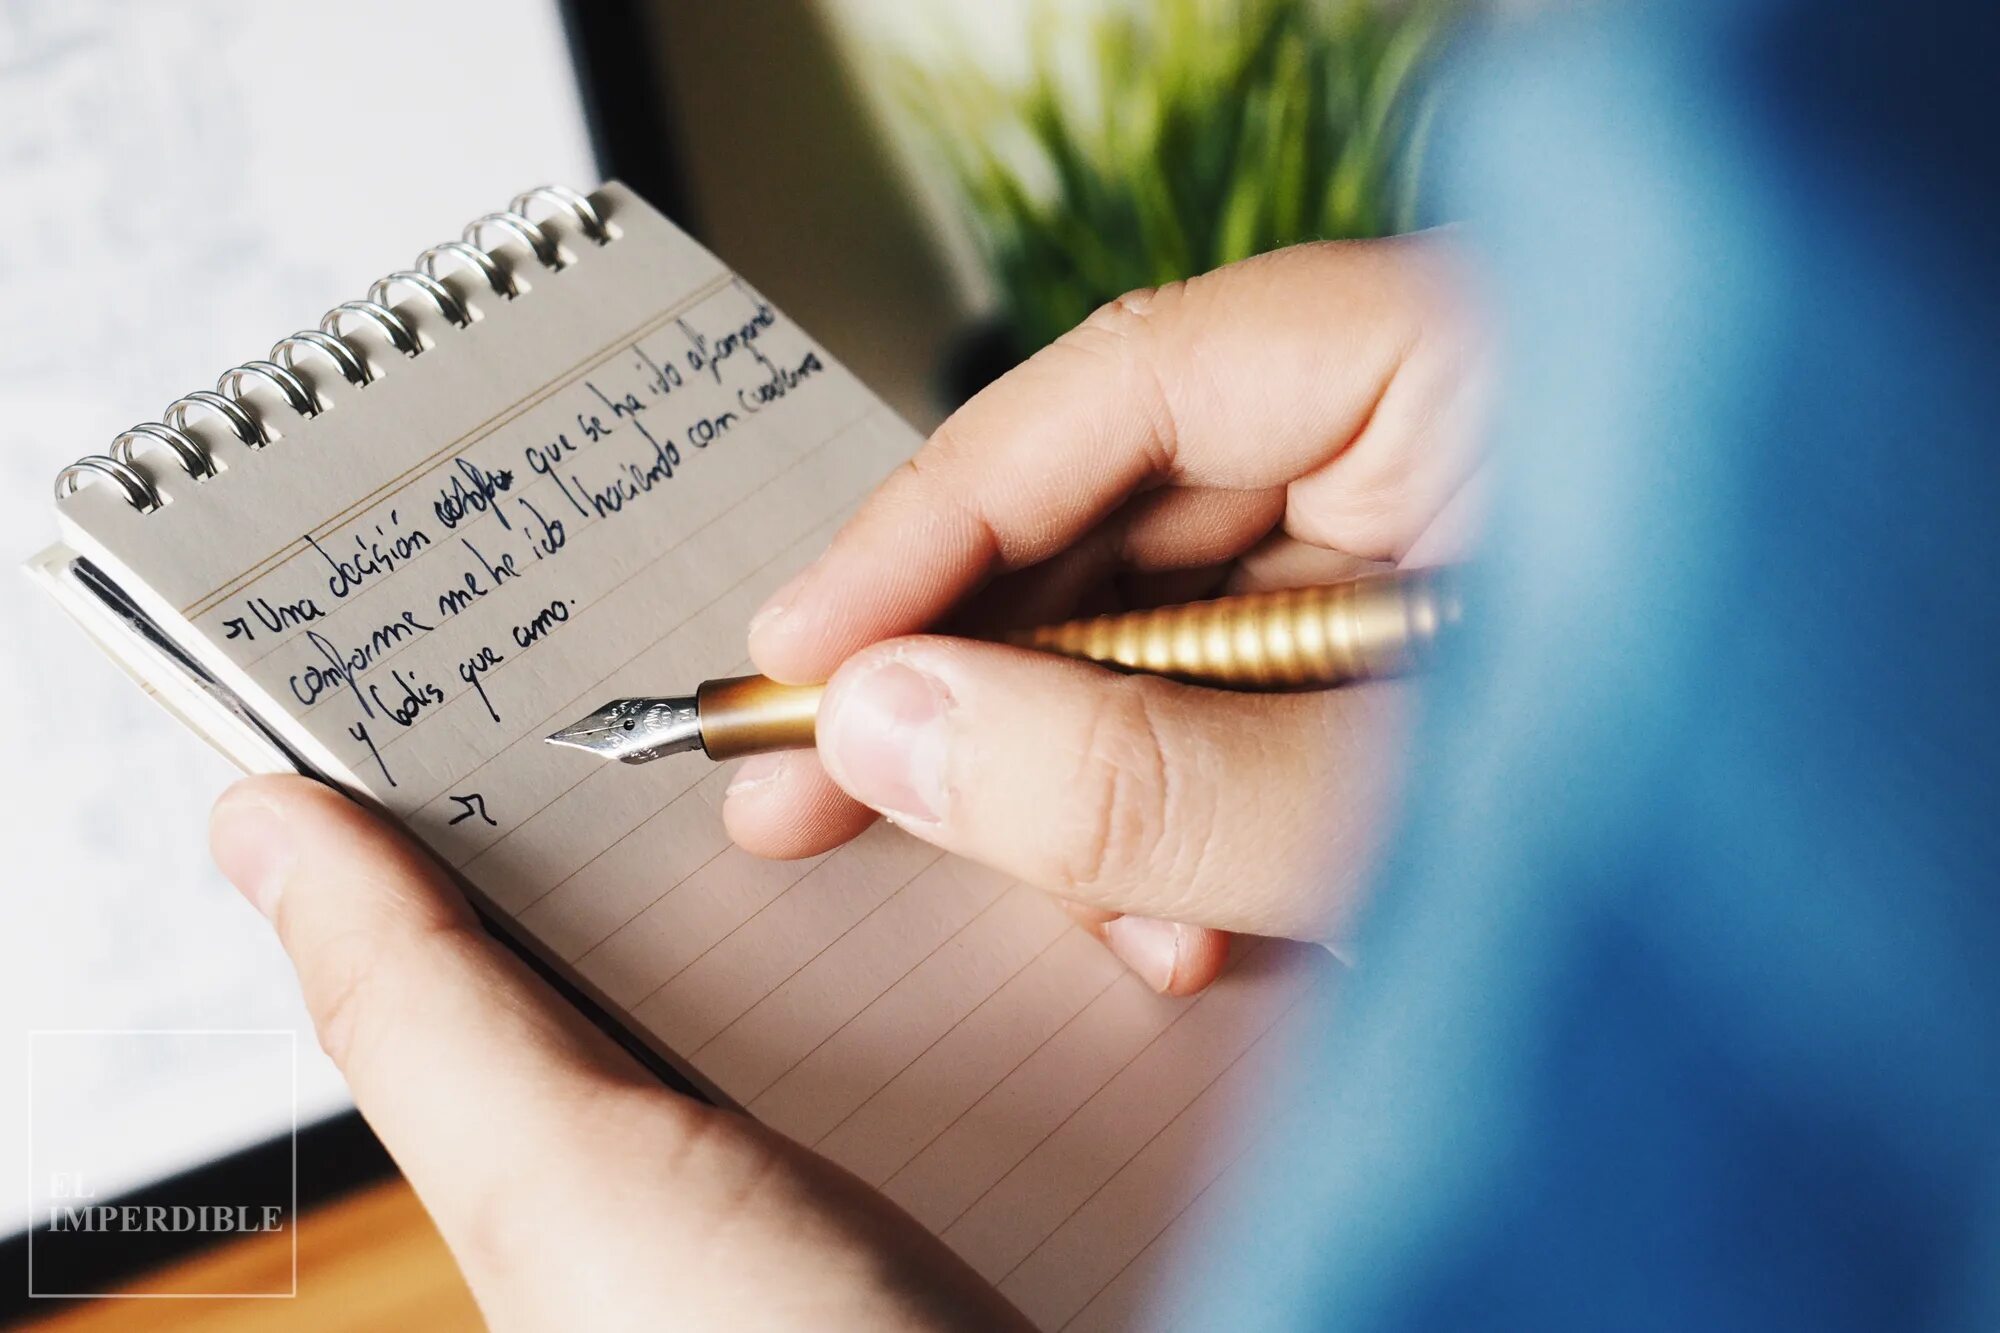 Una decisión que se ha ido afianzando
conforme me he ido haciendo con cuadernos
y bolis que amo.
EL
IMPERDIBLE